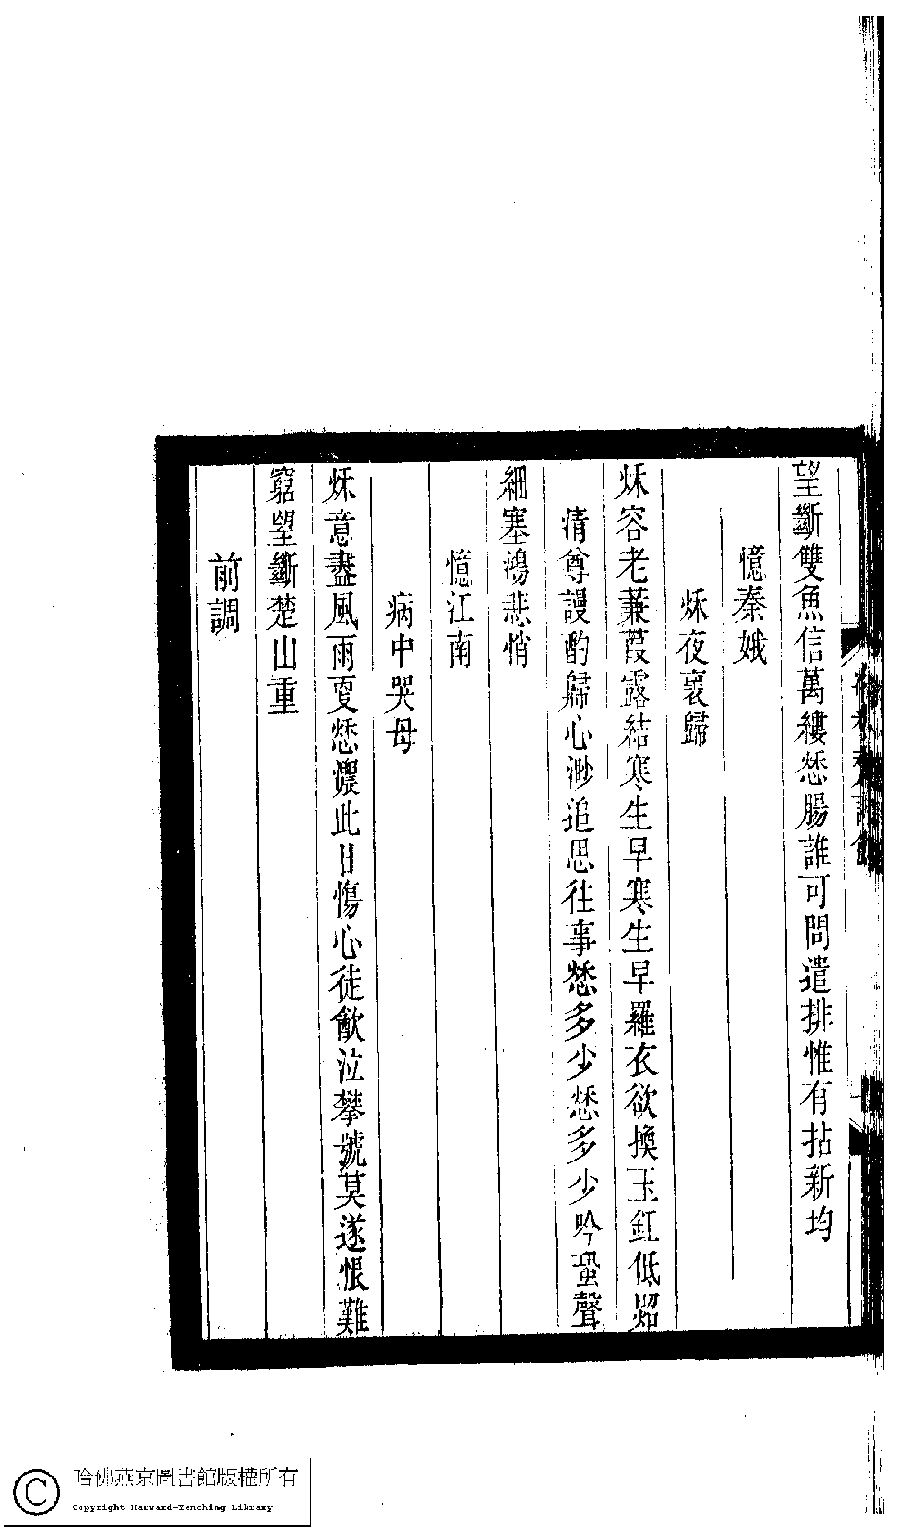 望斷雙魚信萬縷愁腸誰可問遣排惟有拈新均
憶秦娥
秌夜褱歸
秌容老蒹葭露結寒生早寒生早羅衣欲換玉釭低炤
清尊謾酌歸心渺追思往事愁多少愁多少吟蛩聲
細塞鴻悲悄
憶江南
病中哭母
秌意盡風雨夏愁懷此日傷心徒飲泣攀號莫遂恨難
窮望斷楚山重
前調
哈佛燕京圖書館版權所有
Copyright Harvard-Yenching Library